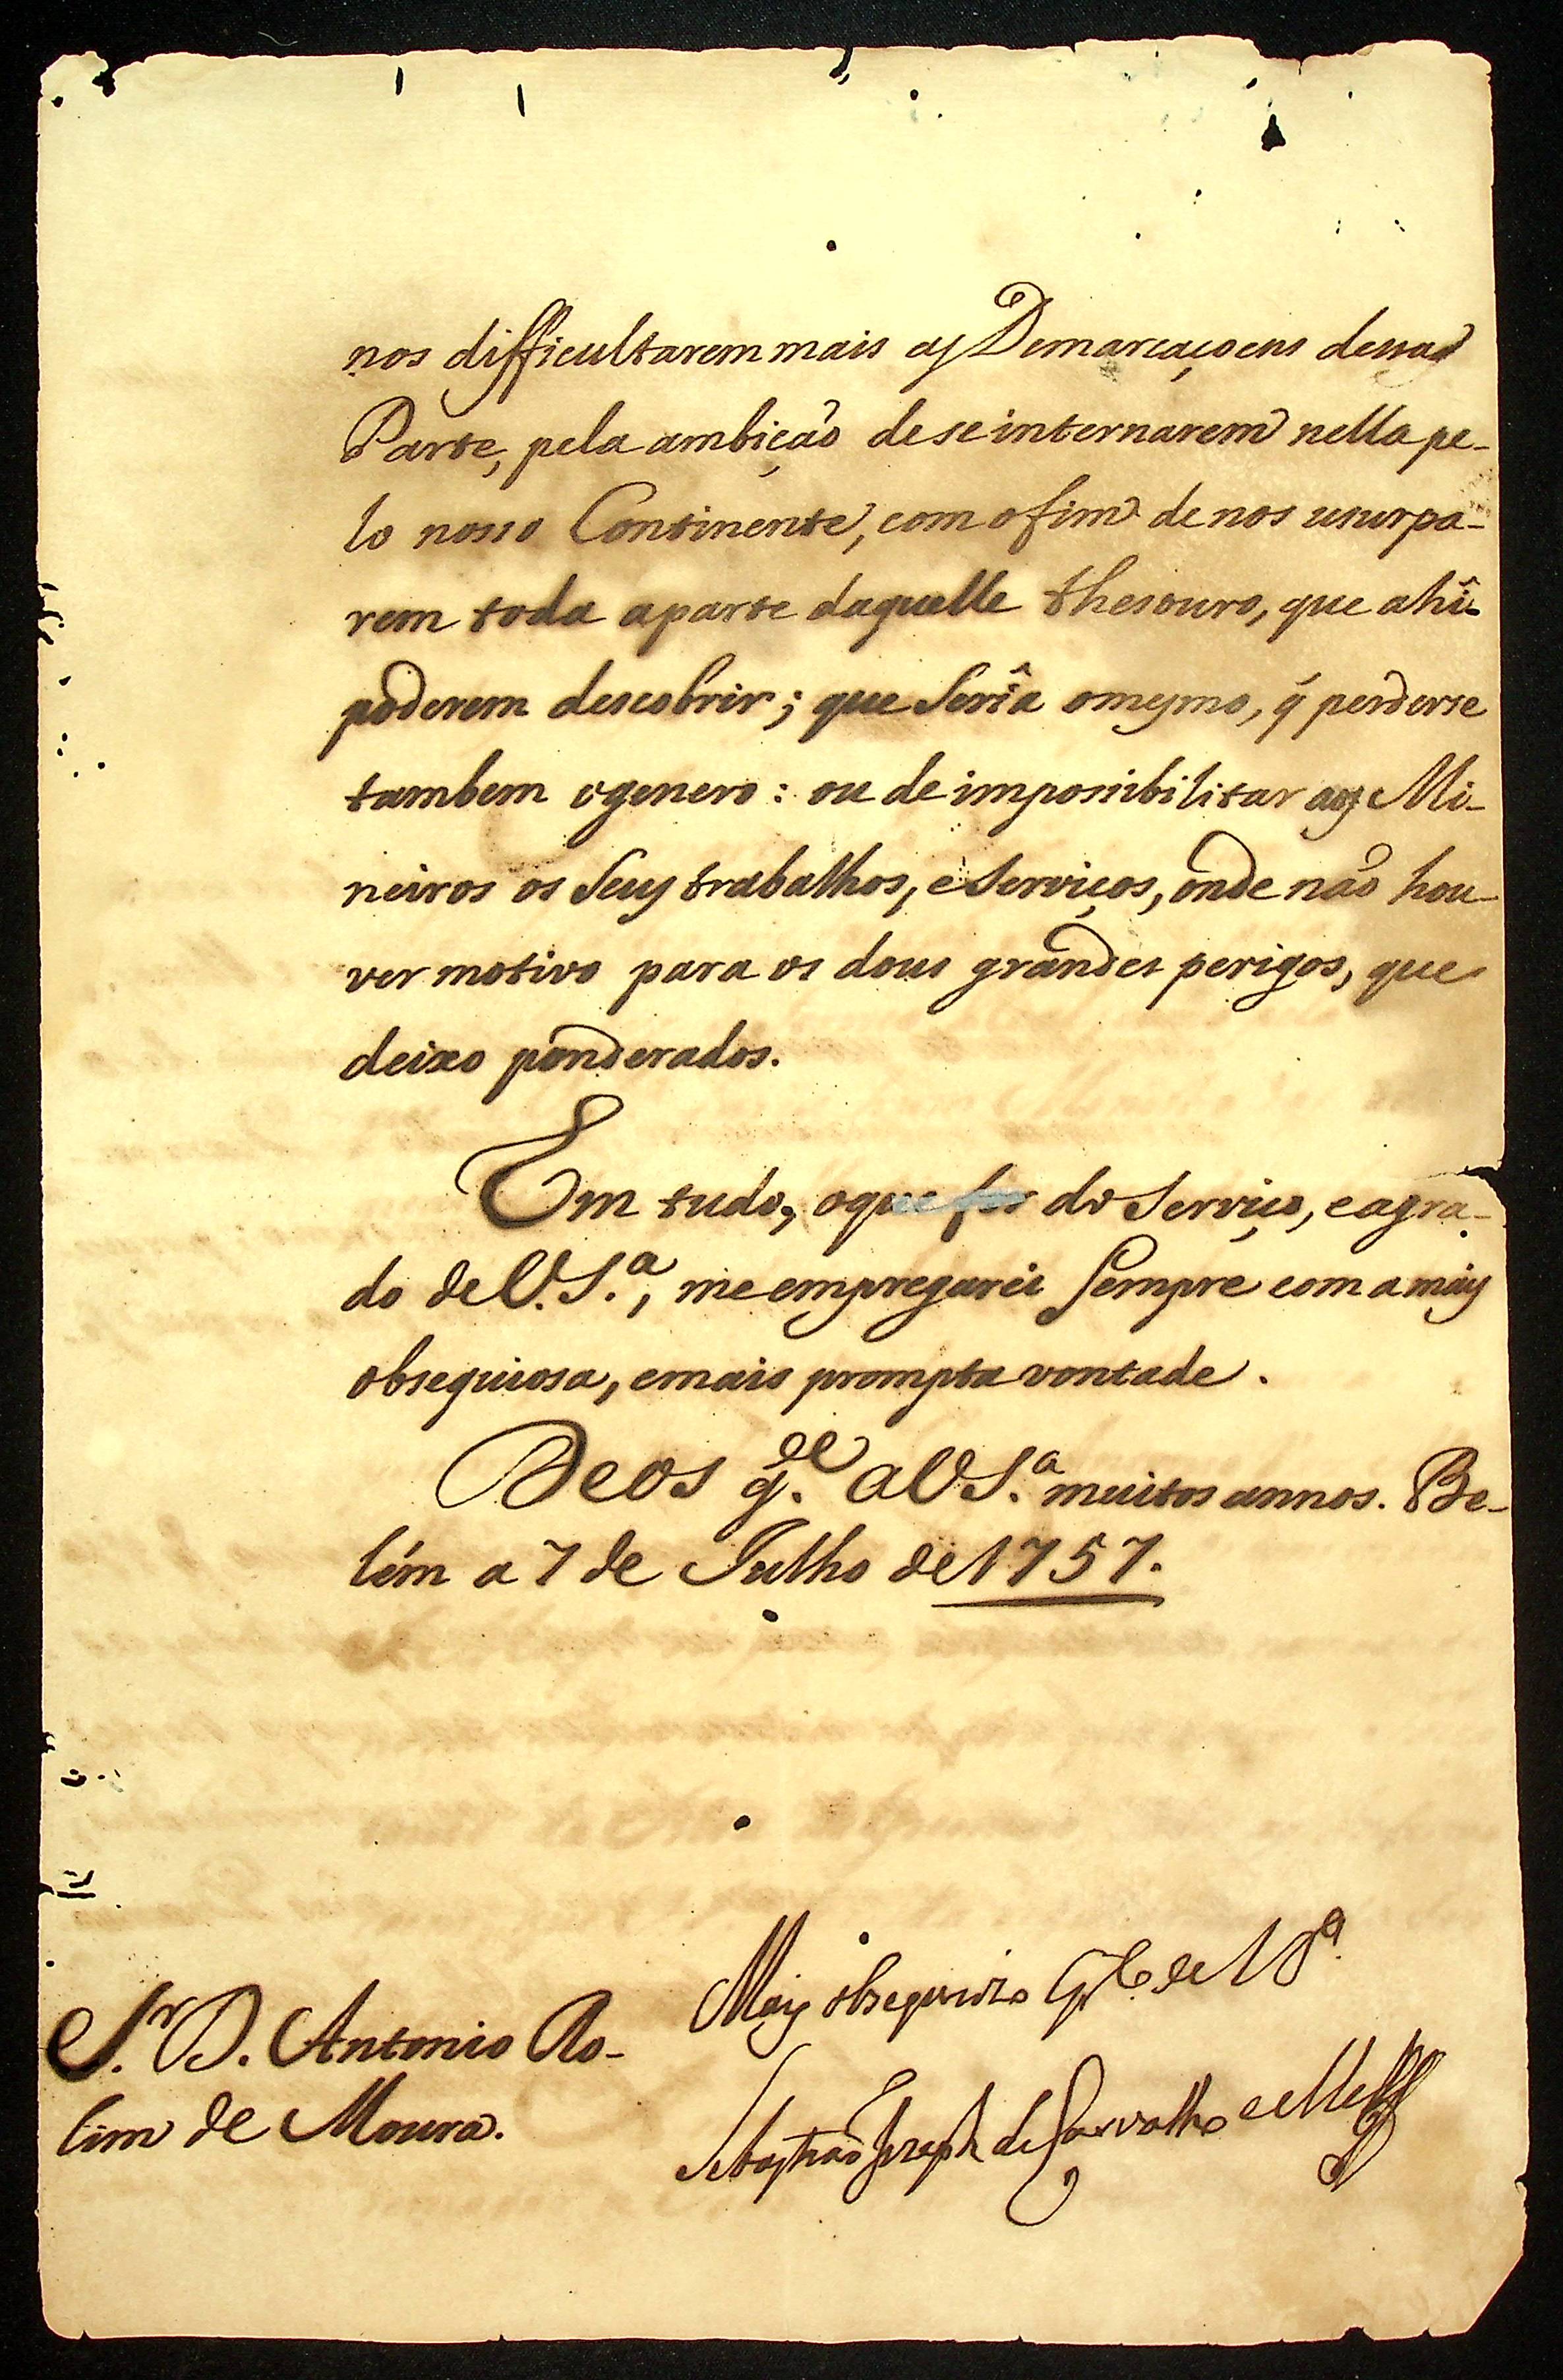 nos difficultarem mais as Demarcaçoens dessa
Parte, pela ambição de se internarem nella pe-
lo nosso Continente, com o fim de nos usurpa-
rem toda a parte daquelle thesouro, que ahî
poderem descobrir; que Serîa o mesmo, q̃ perderse
tambem o genero: ou de impossibilitar aos Mi-
neiros os Seus trabalhos, e Serviços, onde não hou-
ver motivo para os dous grandes perigos, que
deixo ponderados.
Em tudo, o que for do Serviço, e agra-
do de V. S.ª, me empregarei Sempre com a mais
obsequiosa, e mais prompta vontade.
Deos g.de a V S.ª muitos annos. Be-
lém a 7 de Julho de 1757.
Mais obsequiozo de V Sª
S.r D. Antonio Ro-
lim de Moura.
Sebastião Joseph de Carvalho e Mello